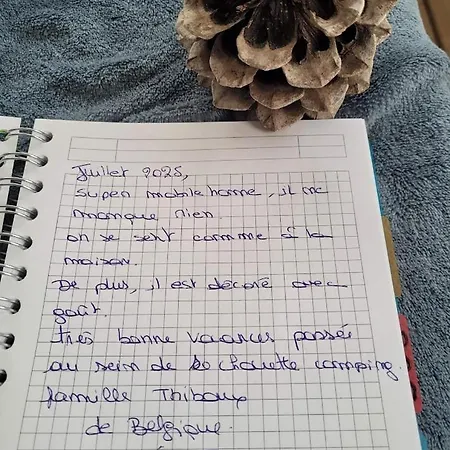 Juillet 2025,
super mobile home, il ne
manque rien.
on se sent comme à la
maison.
De plus, il est décoré avec
goût.
très bonne vacances passée
au sein de ce chouette camping.
famille Thibaux
de Belgique.